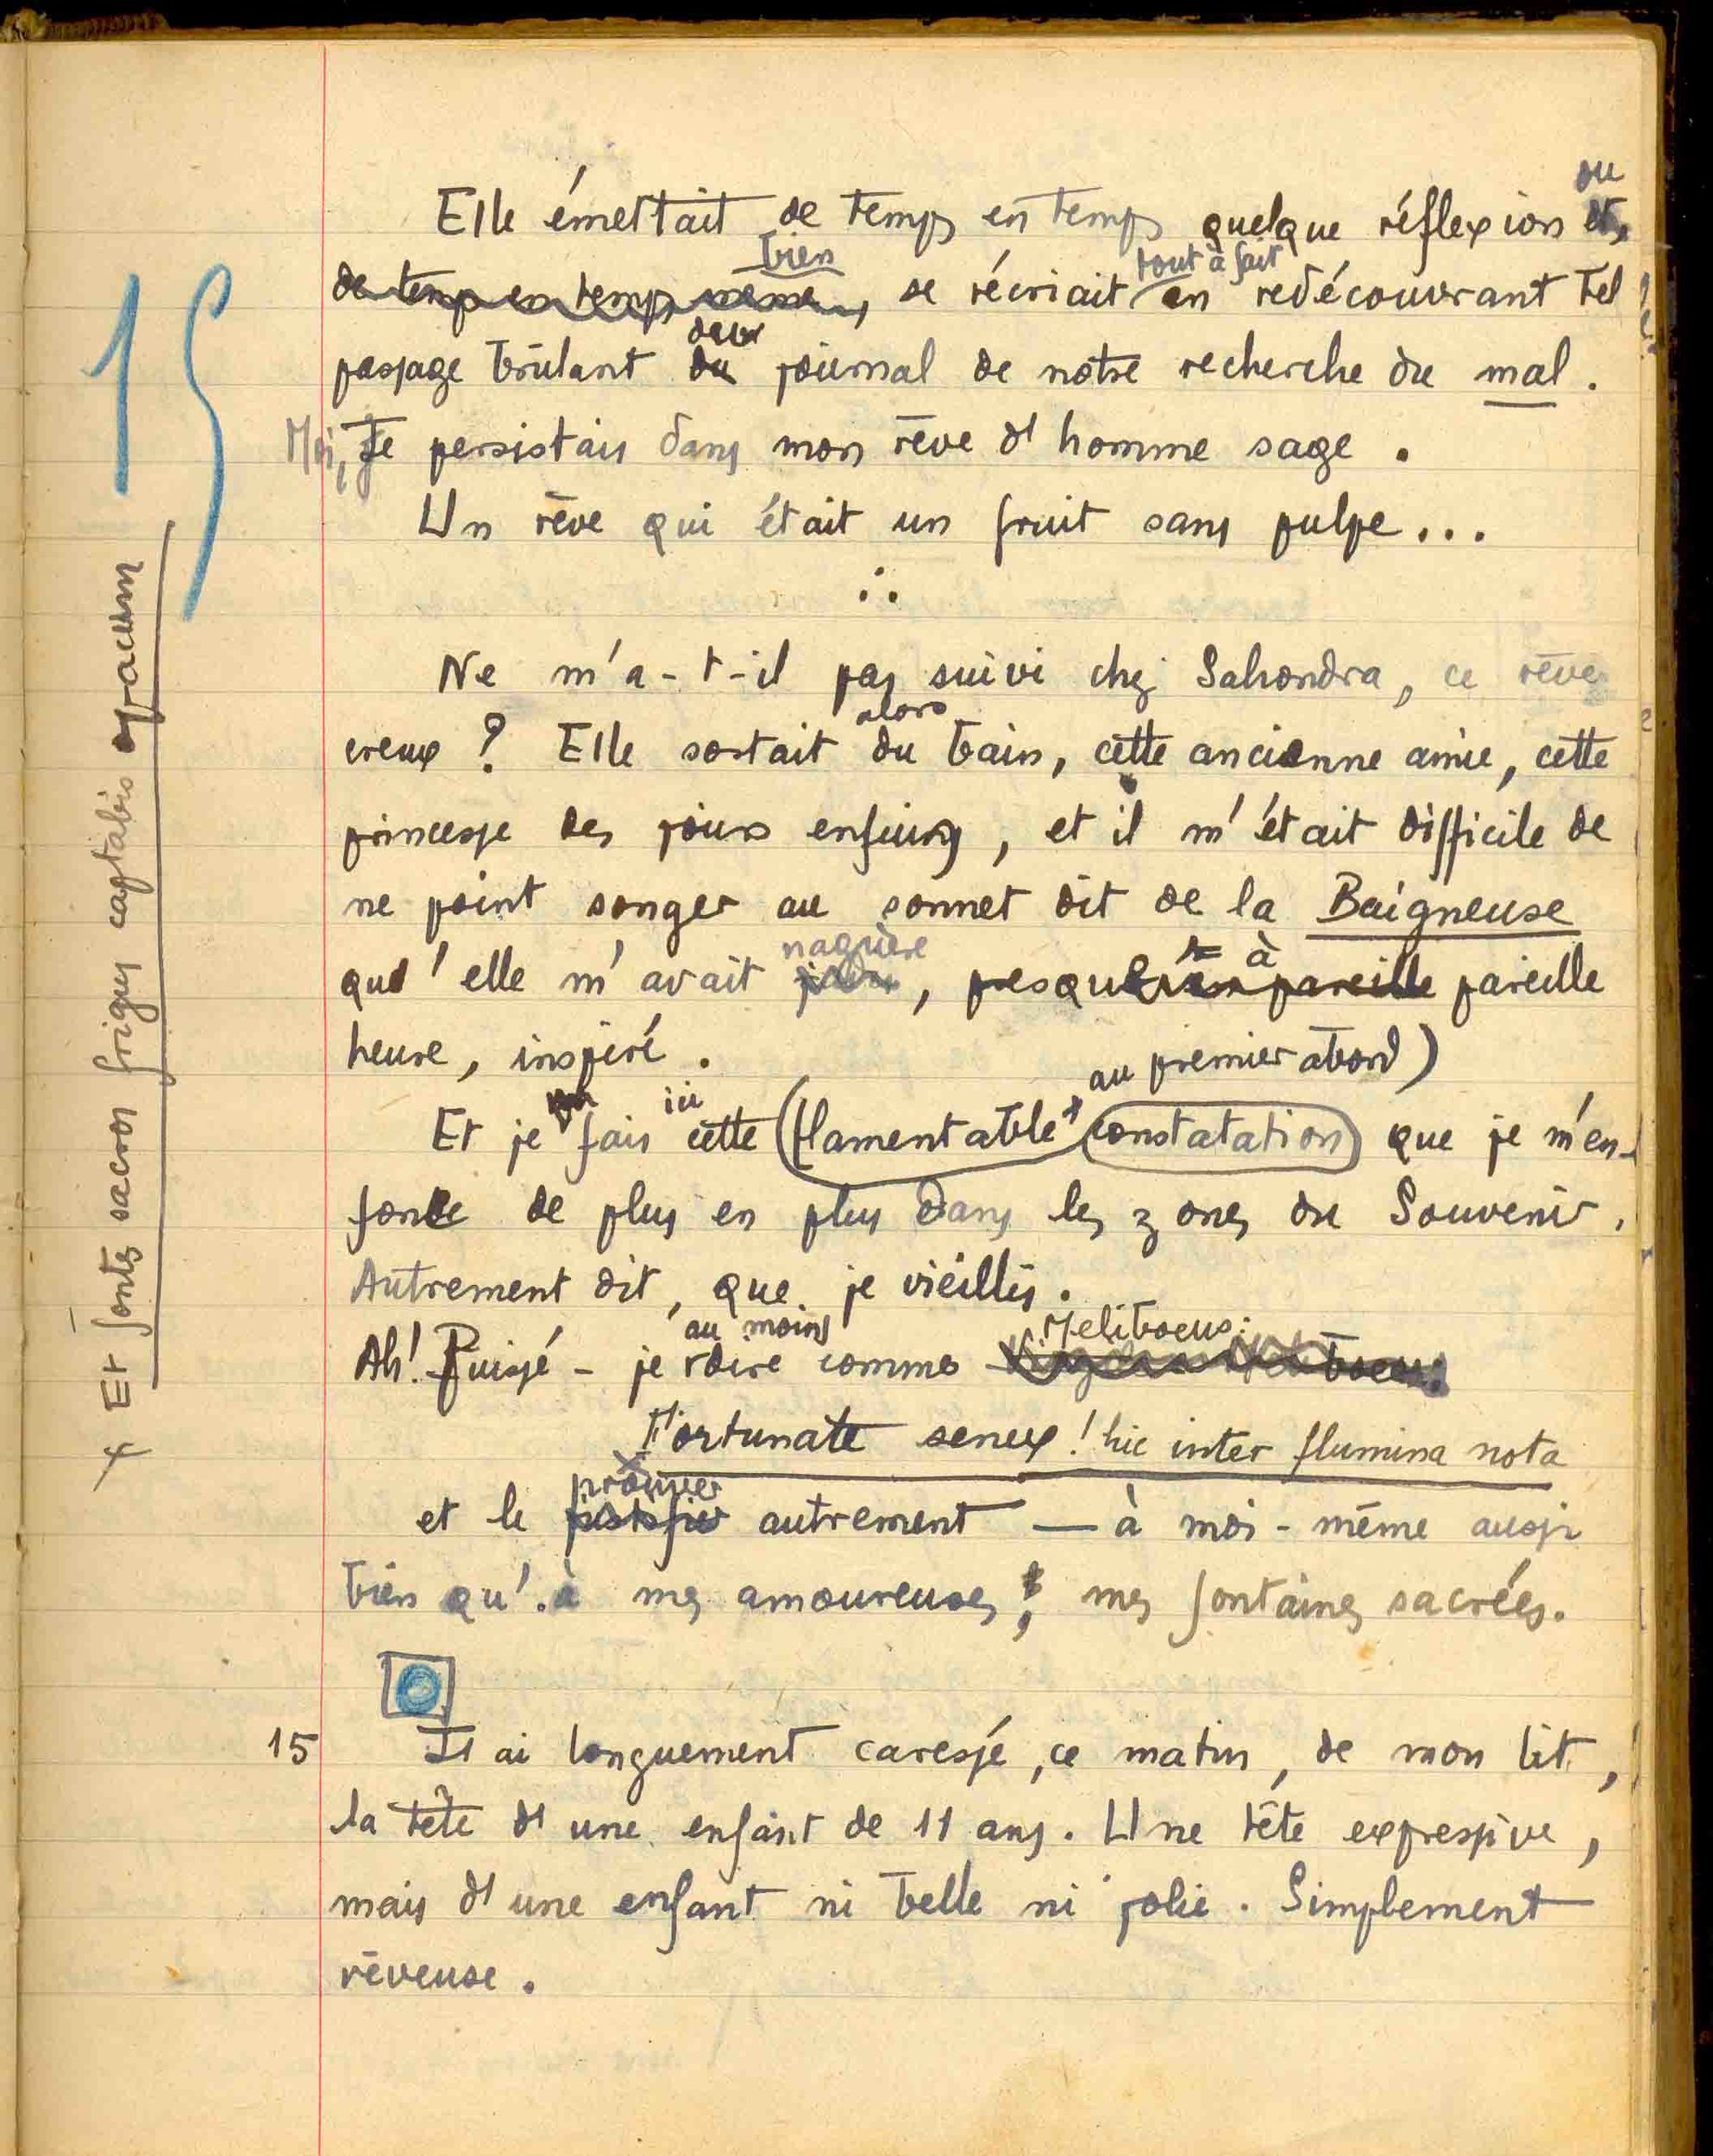 ou
Elle émettait de temps en temps quelque réflexion et,
bien tout à fait
de temps en temps même, se récriait en redécouvrant tel
deux
passage brûlant du journal de notre recherche du mal.
Moi, Je persistais dans mon rêve d'homme sage.
Un rêve qui était un fruit sans pulpe...
∴
Ne m'a-t-il pas suivi chez Sahondra, ce rêve
alors
creux ? Elle sortait du bain, cette ancienne amie, cette
princesse des jours enfuis, et il m'était difficile de
ne point songer au sonnet dit de la Baigneuse
naguère à
qu'elle m'avait, presque pareille pareille
heure, inspiré.
au premier abord)
ici
Et je fais cette (lamentable constatation que je m'en-
fonce de plus en plus dans les zones du Souvenir.
Autrement dit, que je vieillis.
au moins Meliboeus:
Ah! Puissé-je dire comme
Fortunate senex! hic inter flumina nota
prouver
et le justifier autrement — à moi-même aussi
bien qu'à mes amoureuses, mes fontaines sacrées.
15 J'ai longuement caressé, ce matin, de mon lit,
la tête d'une enfant de 11 ans. Une tête expressive,
mais d'une enfant ni belle ni jolie. Simplement
rêveuse.
15
x Et fontes sacros frigus captabis opacum